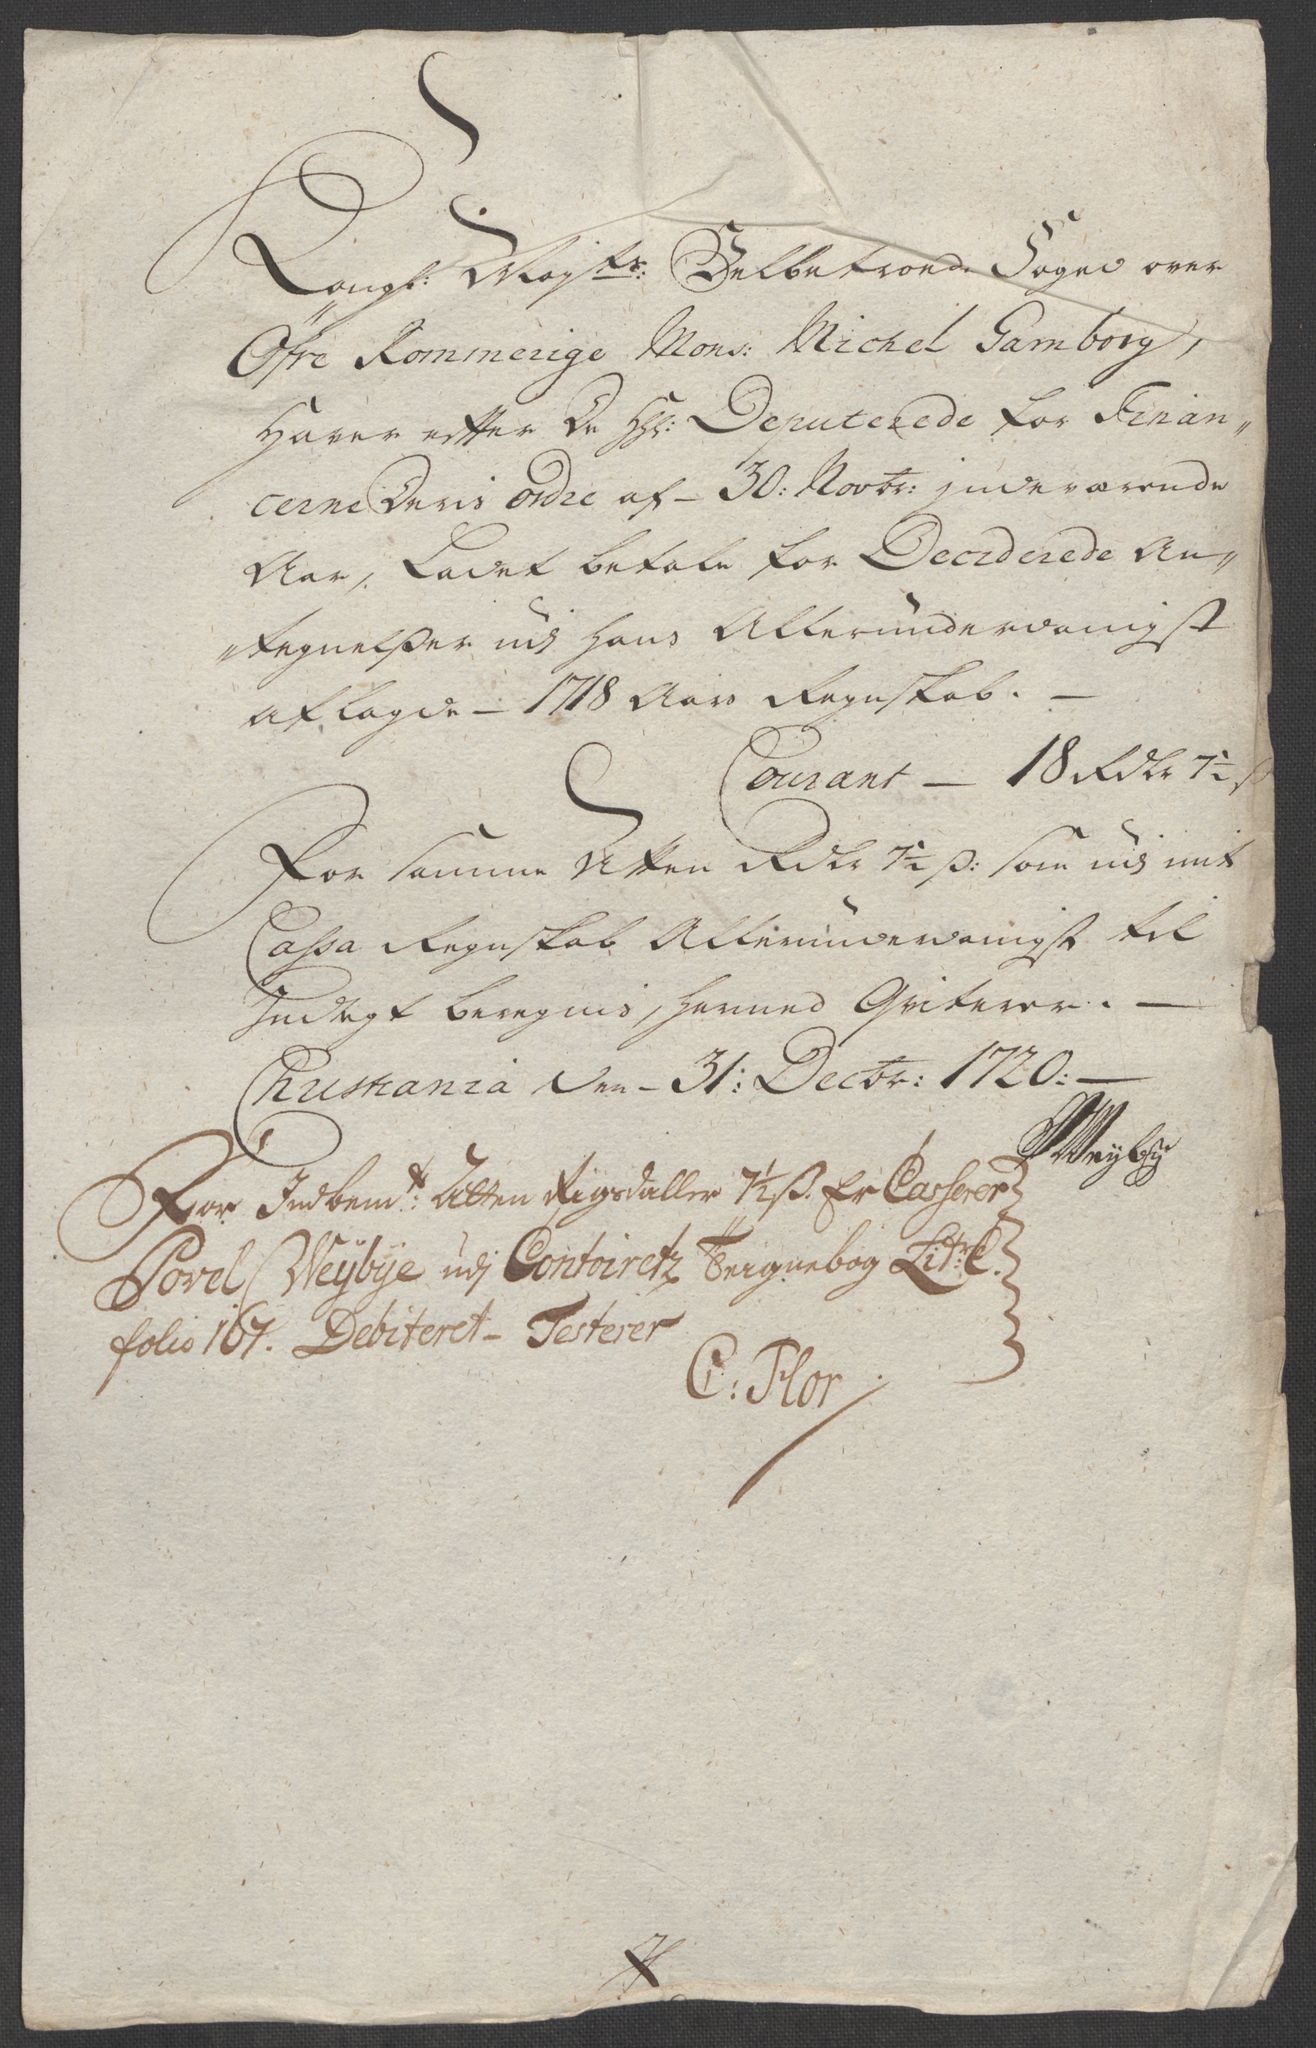 Kongl: Mayts: Velbetroede Foged over
Øfre Rommerige Mons: Michel Gamborg,
Haver efter De HH: Deputerede for Finan„
cerne Deris ordre af – 30: Novbr: indeværende
Aar, Ladet betale for Deciderede An„
„tegnelßer udj hans Allerunderdanigst
aflagde – 1718 Aars Regnskab. –
Courant – 18 Rdlr 7½ ß
For samme Atten Rdlr 7½ ß: som udj mit
Cassa Regnskab Allerunderdanigst til
Indtegt beregnis, hermed Qviterer. –
Christiania den – 31: Decbr: 1720: –
PWeybye
For Indbemte: Atten Rigsdaller 7½ ß. Er Casserer
Povel Weybye udj Contoiretz Teignebog Litr: C.
folio 167. Debiteret – Testerer
C: Flor